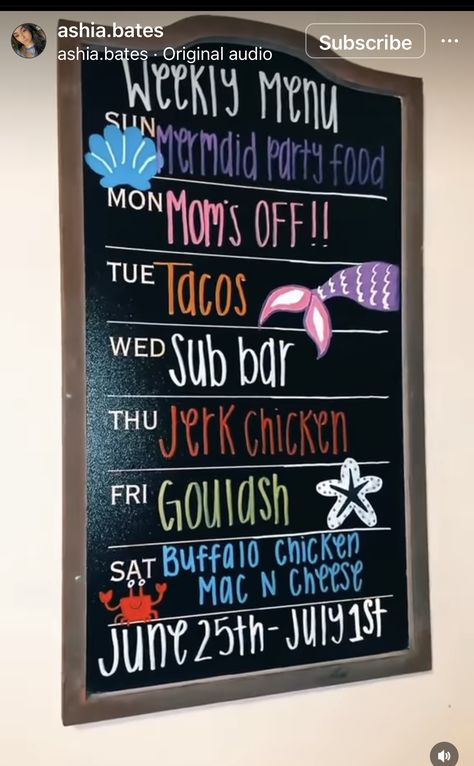 ashia.bates
ashia.bates · Original audio
Subscribe
Weekly Menu
SUN Mermaid Party Food
MON Mom's OFF!!
TUE Tacos
WED Sub bar
THU Jerk Chicken
FRI Gouldsh
SAT Buffalo Chicken
Mac N Cheese
June 25th - July 1st